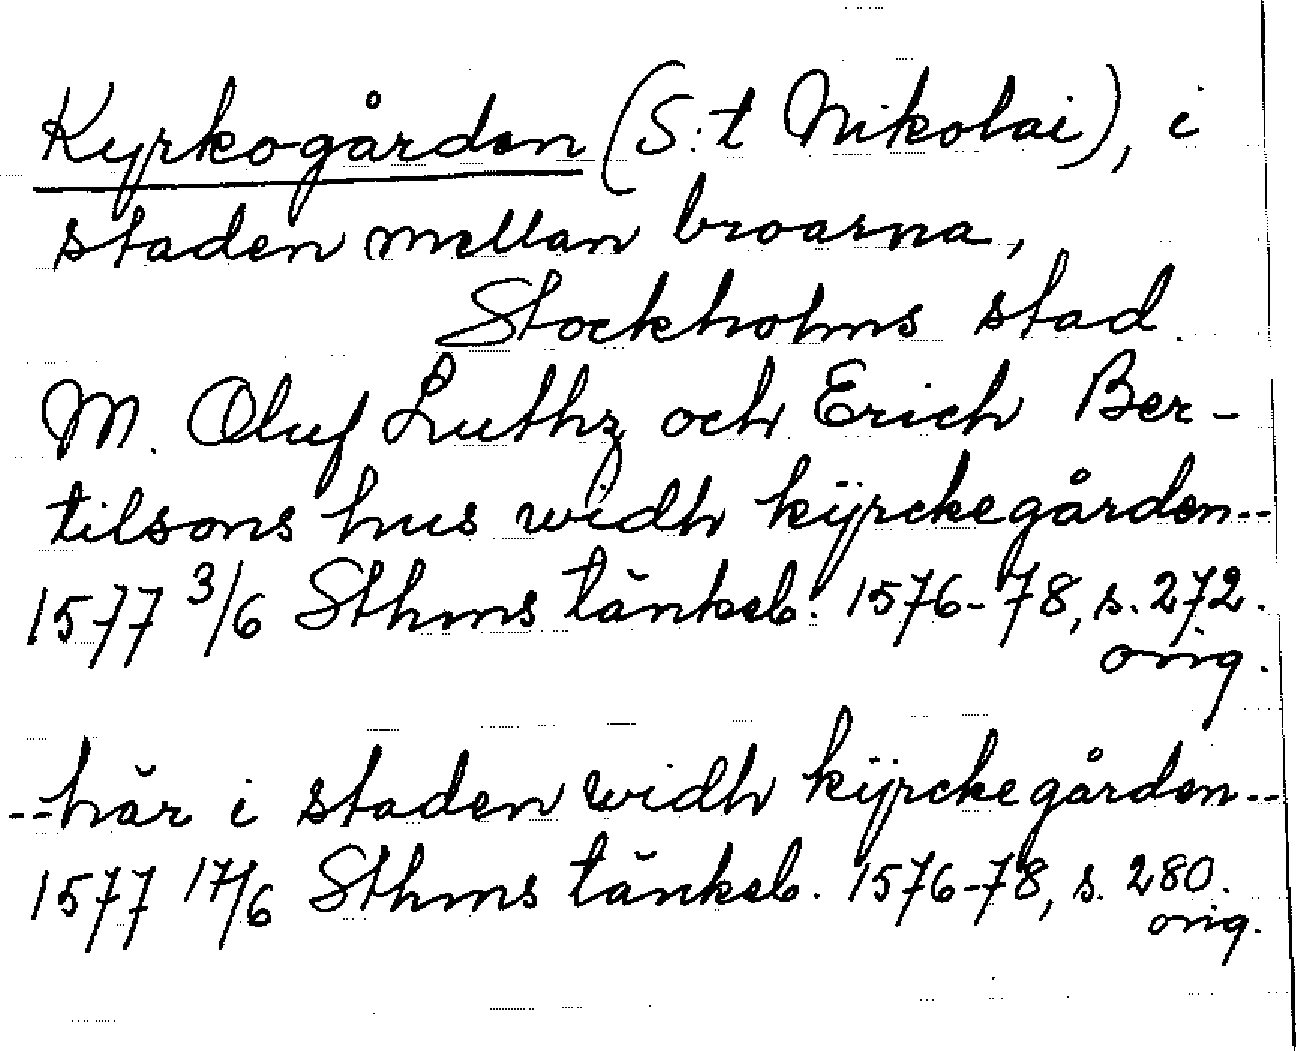 Kyrkogården (S:t Nikolai), i
staden mellan broarna,
Stockholms stad.
M. Oluf Luthz och Erich Ber-
tilsons hus widh kÿrckegården--
1577 3/6 Sthms tänkeb. 1576-78, s. 272.
orig.
--här i staden widh kÿrckegården--
1577 17/6 Sthms tänkeb. 1576-78, s. 280.
orig.